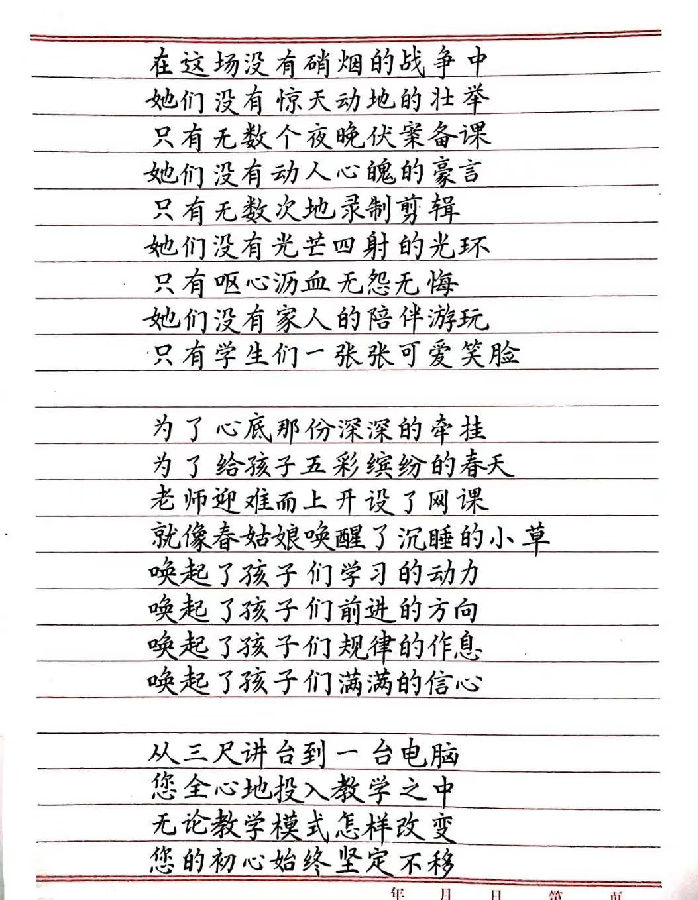 在这场没有硝烟的战争中
她们没有惊天动地的壮举
只有无数个夜晚伏案备课
她们没有动人心魄的豪言
只有无数次地录制剪辑
她们没有光芒四射的光环
只有呕心沥血无怨无悔
她们没有家人的陪伴游玩
只有学生们一张张可爱笑脸
为了心底那份深深的牵挂
为了给孩子五彩缤纷的春天
老师迎难而上开设了网课
就像春姑娘唤醒了沉睡的小草
唤起了孩子们学习的动力
唤起了孩子们前进的方向
唤起了孩子们规律的作息
唤起了孩子们满满的信心
从三尺讲台到一台电脑
您全心地投入教学之中
无论教学模式怎样改变
您的初心始终坚定不移
年 月 日 第 页